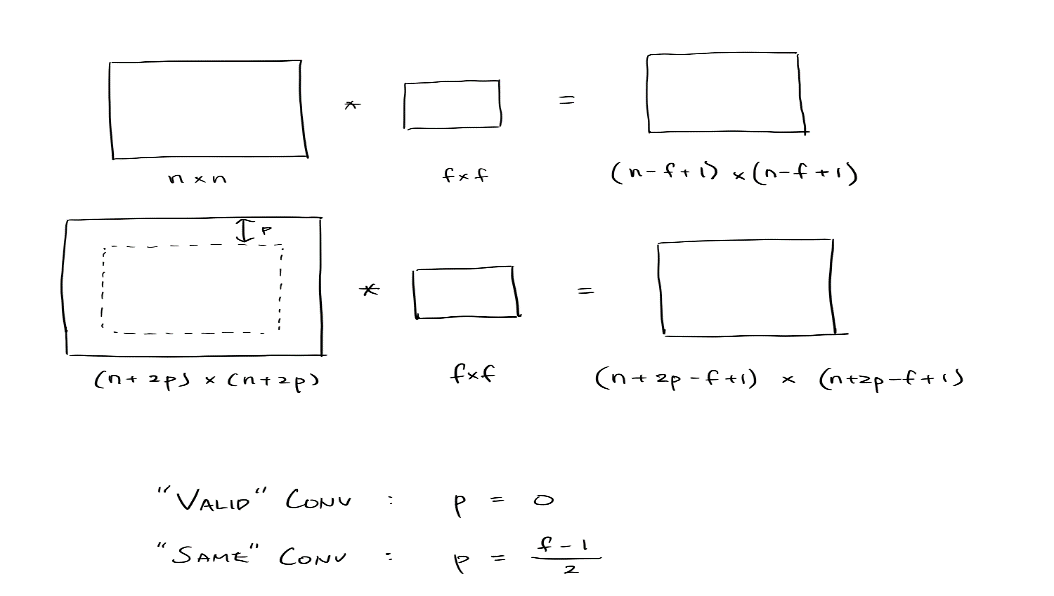 * =
n × n f×f (n-f+1) × (n-f+1)
p
* =
(n+2p) × (n+2p) f×f (n+2p-f+1) × (n+2p-f+1)
"VALID" CONV : p = 0
"SAME" CONV : p = (f-1)/2